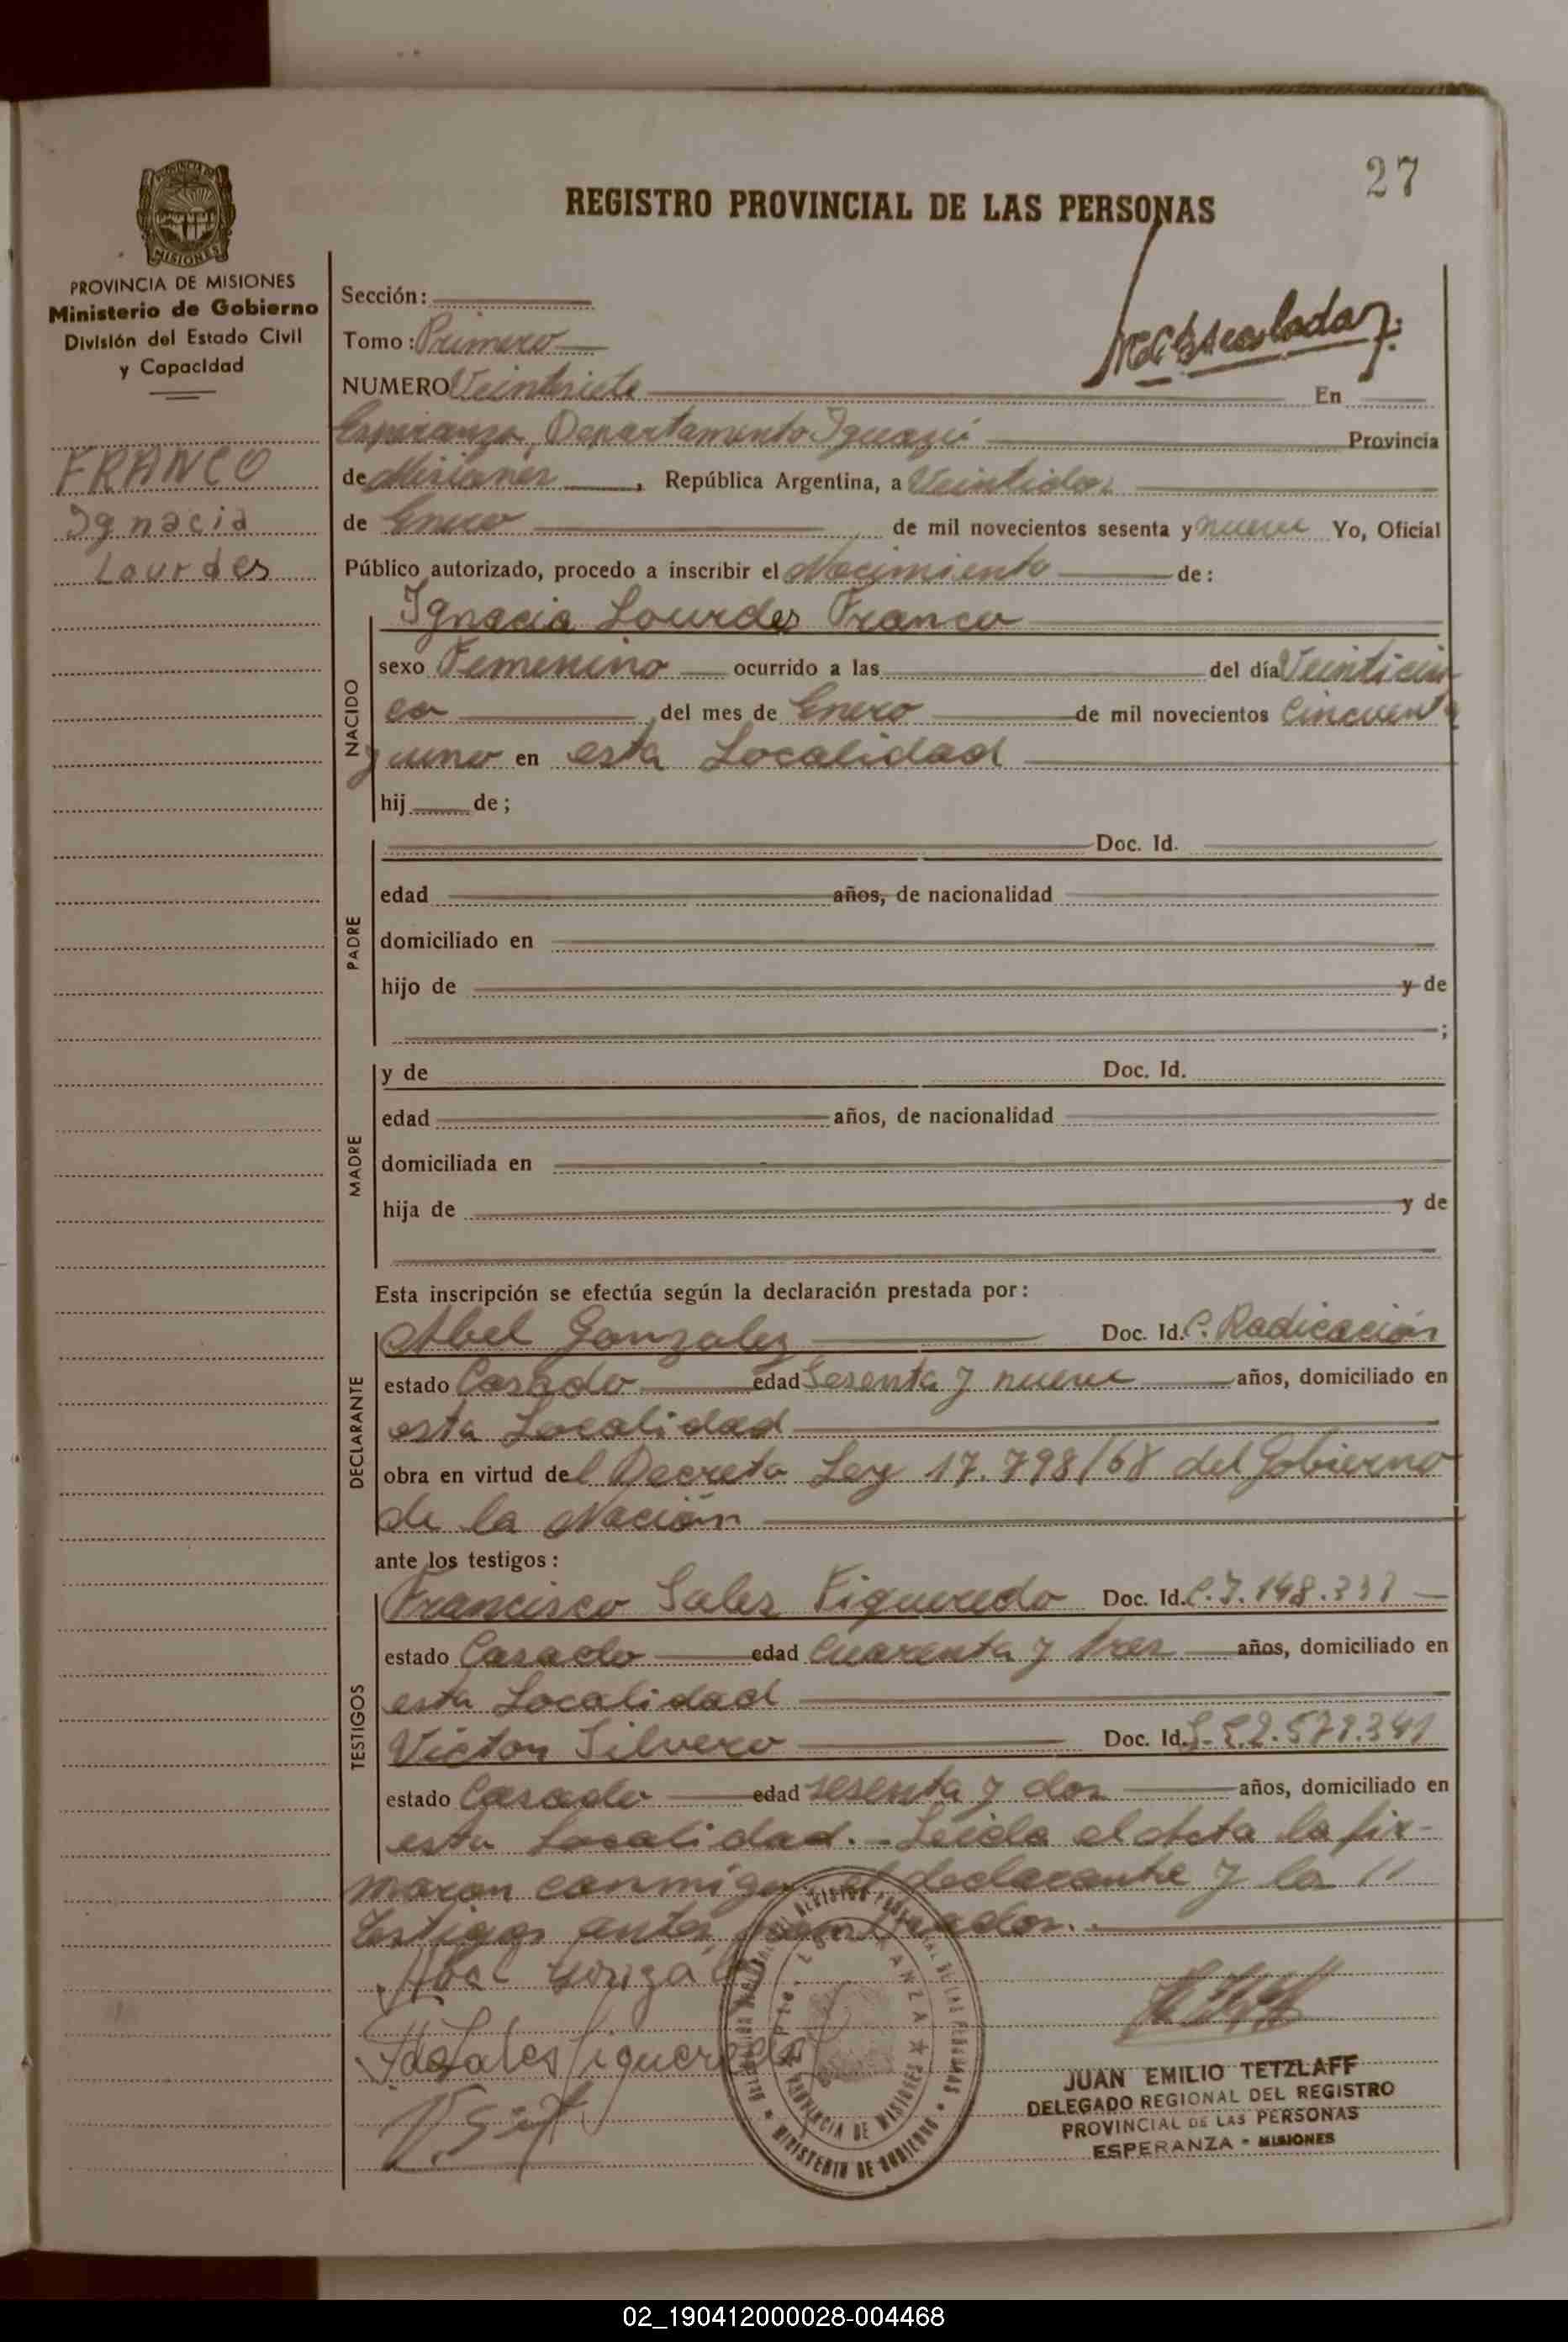 27
REGISTRO PROVINCIAL DE LAS PERSONAS
PROVINCIA DE MISIONES
Ministerio de Gobierno
División del Estado Civil
y Capacidad
FRANCO
Ignacia
Lourdes
Sección:
Tomo: Primero
NUMERO Veintisiete En
Esperanza, Departamento Iguazú Provincia
de Misiones, República Argentina, a Veintidos
de Enero de mil novecientos sesenta y nueve Yo, Oficial
Público autorizado, procedo a inscribir el Nacimiento de:
NACIDO
Ignacia Lourdes Franco
sexo Femenino ocurrido a las del día Veinticin
co del mes de Enero de mil novecientos Cincuenta
y uno en esta Localidad
hij de;
PADRE
Doc. Id.
edad años, de nacionalidad
domiciliado en
hijo de y de
;
MADRE
y de Doc. Id.
edad años, de nacionalidad
domiciliada en
hija de y de
Esta inscripción se efectúa según la declaración prestada por:
DECLARANTE
Abel Gonzalez Doc. Id. C. Radicación
estado Casado edad Sesenta y nueve años, domiciliado en
esta Localidad
obra en virtud del Decreto Ley 17.798/68 del Gobierno
de la Nación
ante los testigos:
TESTIGOS
Francisco Sales Figueredo Doc. Id. C.I. 148.
estado Casado edad Cuarenta y tres años, domiciliado en
esta Localidad
Victor Silvero Doc. Id.
estado Casado edad sesenta y dos años, domiciliado en
esta Localidad. Leida el Acta la fir-
maron conmigo el declarante y los
testigos antes nombrados.
Abel Gonzalez
Sales Figueredo
JUAN EMILIO TETZLAFF
DELEGADO REGIONAL DEL REGISTRO
PROVINCIAL DE LAS PERSONAS
ESPERANZA - MISIONES
PROVINCIA DE MISIONES
MINISTERIO DE GOBIERNO
02_190412000028-004468